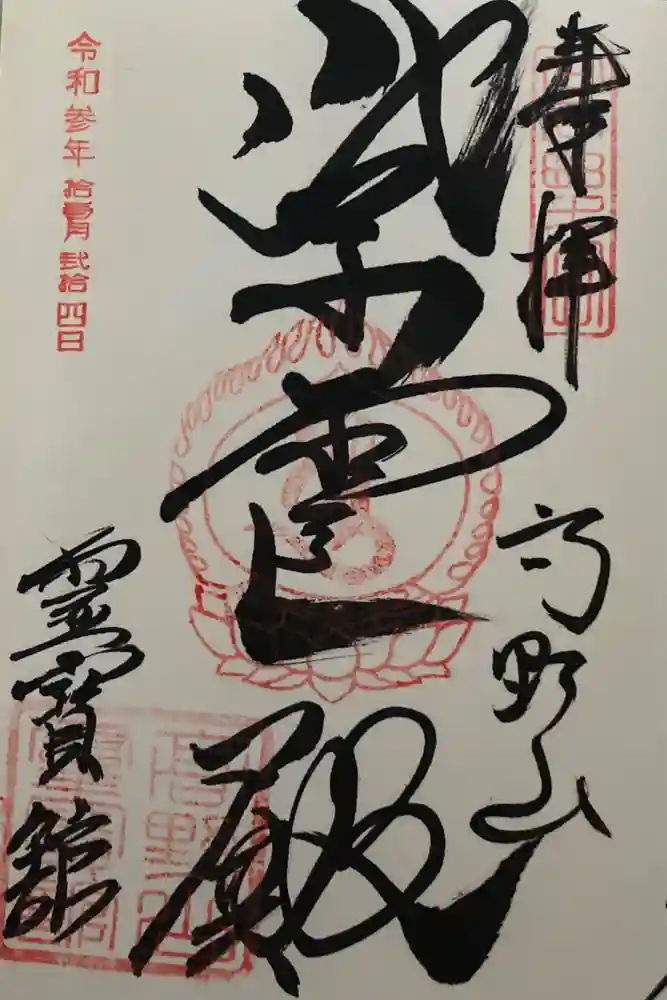 奉拝
高野山
紫雲殿
令和参年拾壹月弐拾四日
霊寶舘